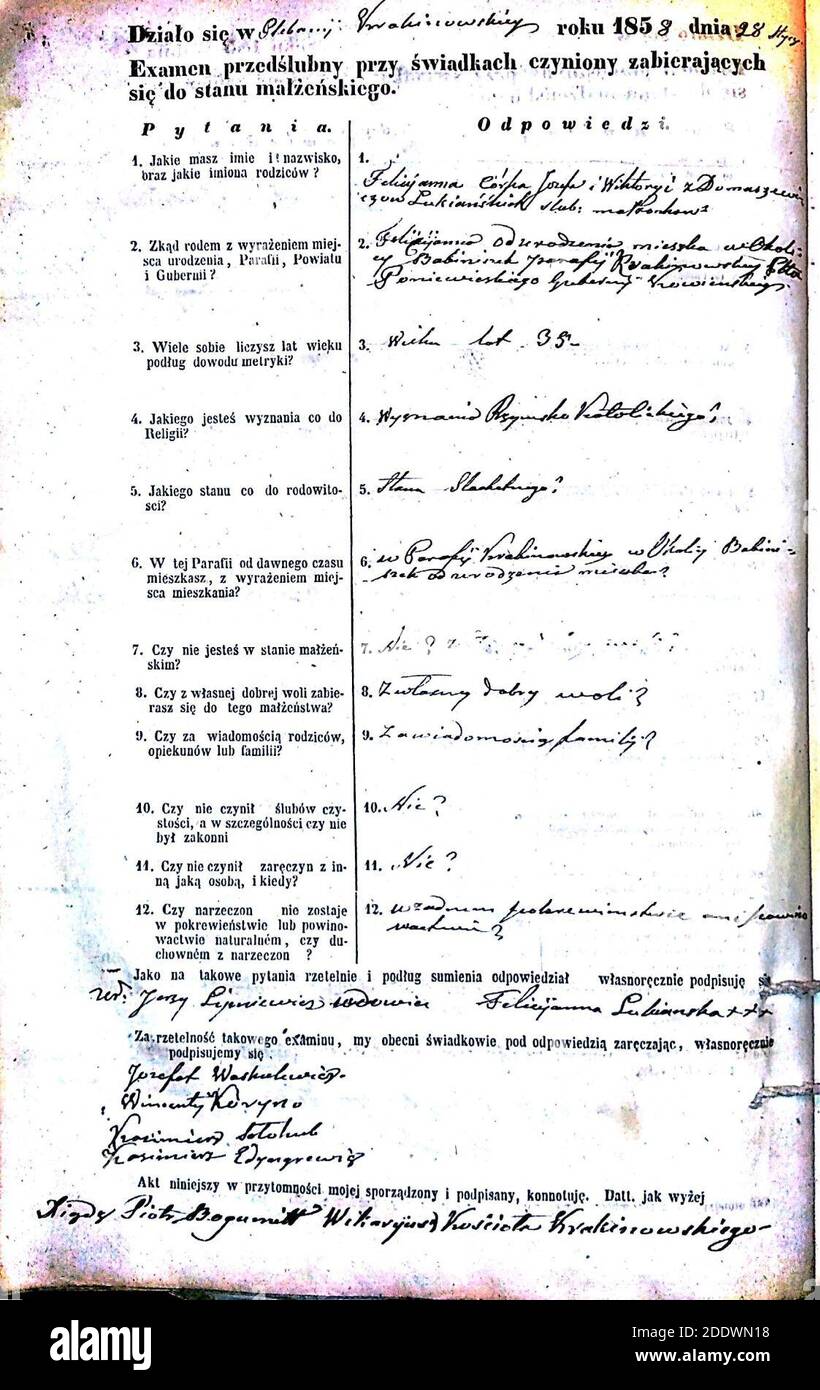 Działo się w Plebanij Krakinowskiey roku 1858 dnia 28
Examen przedślubny przy świadkach czyniony zabierających
się do stanu małżeńskiego.
Pytania. Odpowiedzi.
1. Jakie masz imie i nazwisko,
oraz jakie imiona rodziców?
1.
Felicijanna Córka Jozefa i Wiktoryi z Domaszewi-
czow Łukiańskich slub:
2. Zkąd rodem z wyrażeniem miej-
sca urodzenia, Parafii, Powiatu
i Gubernii?
2. Felicijanna od urodzenia mieszka w Okoli-
cy Babiniszek parafij Krakinowskiey Pttu
Poniewieskiego Gubernij Kowienskiey
3. Wiele sobie liczysz lat wieku
podług dowodu metryki?
3. Wieku lat 35
4. Jakiego jesteś wyznania co do
Religii?
4. Wyznania Rzymsko Katolickiego?
5. Jakiego stanu co do rodowito-
ści?
5. Stanu Slachetnego?
6. W tej Parafii od dawnego czasu
mieszkasz, z wyrażeniem miej-
sca mieszkania?
6. w Parafij Krakinowskiey w Okolicy Babini-
szek od urodzenia mieszka?
7. Czy nie jesteś w stanie małżeń-
skim?
7. Nie?
8. Czy z własnej dobrej woli zabie-
rasz się do tego małżeństwa?
8. Z własney dobry woli?
9. Czy za wiadomością rodziców,
opiekunów lub familii?
9. Za wiadomoscią familij?
10. Czy nie czynił ślubów czy-
stości, a w szczególności czy nie
był zakonni
10. Nie?
11. Czy nie czynił zaręczyn z in-
ną jaką osobą, i kiedy?
11. Nie?
12. Czy narzeczon nie zostaje
w pokrewieństwie lub powino-
wactwie naturalném, czy du-
chowném z narzeczon ?
12. w zadnem pokrewienstwie ani powino
wactwie?
Jako na takowe pytania rzetelnie i podług sumienia odpowiedział własnoręcznie podpisuję się
Jerzy Lipniewicz wdowiec Felicijanna Lukianska +++
Za rzetelność takowego examinu, my obecni świadkowie pod odpowiedzią zaręczając, własnoręcznie
podpisujemy się.
Jozefat Waskielewicz
Wincenty Koryzno
Kazimierz Sołohub
Kazimierz
Akt niniejszy w przytomności mojej sporządzony i podpisany, konnotuję. Datt. jak wyżej
Xiądz Piotr Bogumiłł Wikaryusz Kościoła Krakinowskiego
alamy
Image ID: 2DDWN18
www.alamy.com